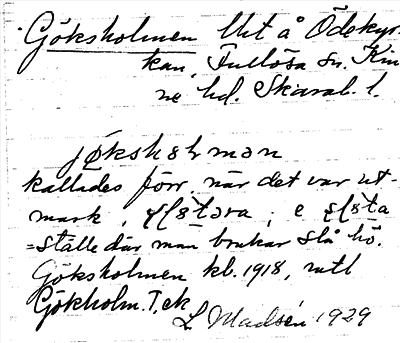 Göksholmen Uht å Ödekyr-
kan, Fullösa sn. Kin
ne hd. Skarab. l.
jøksholman
kallades förr, när det var ut-
mark,
=ställe där man brukar slå hö.
Göksholmen kb. 1918,
Gökholm. T, ek
L. Madsén 1929